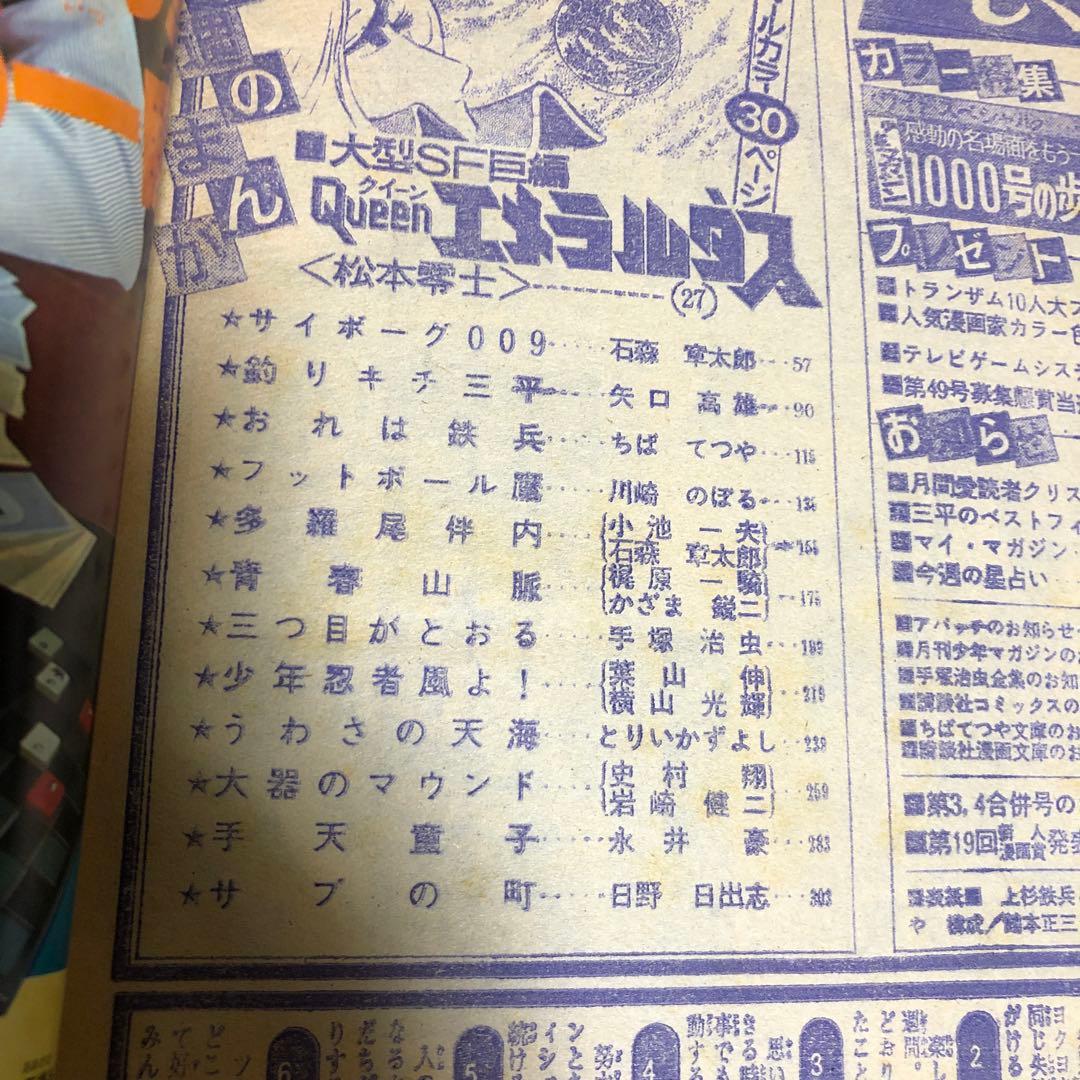 のまんが
ルカラー30ページ
■大型SF巨編
クイーン
Queenエメラルダス
〈松本零士〉(27)
★サイボーグ009……石森章太郎…57
★釣りキチ三平……矢口高雄…90
★おれは鉄兵……ちばてつや…115
★フットボール鷹……川崎のぼる…135
★多羅尾伴内……{小池一夫
石森章太郎}…155
★青春山脈……{梶原一騎
かざま鋭二}…175
★三つ目がとおる……手塚治虫…199
★少年忍者風よ!……{葉山伸
横山光輝}…219
★うわさの天海……とりいかずよし…239
★大器のマウンド……{史村翔
岩崎健二}…259
★手天童子……永井豪…283
★サブの町……日野日出志…303
カラー特集
感動の名場面をもう一
1000号の歩
プレゼント
■トランザム10人大プ
■人気漫画家カラー色
■テレビゲームシステ
■第49号募集懸賞当
おしらせ
■月間愛読者クリス
■三平のベストフィ
■マイ・マガジン
■今週の星占い
■アパッチのお知らせ
■月刊少年マガジンの
■手塚治虫全集のお知
■講談社コミックスの
■ちばてつや文庫のお
■講談社漫画文庫のお
■第3,4合併号の
■第19回新人漫画賞発表
■表紙■ 上杉鉄兵
や 構成/橋本正三
2
3
4
5
6